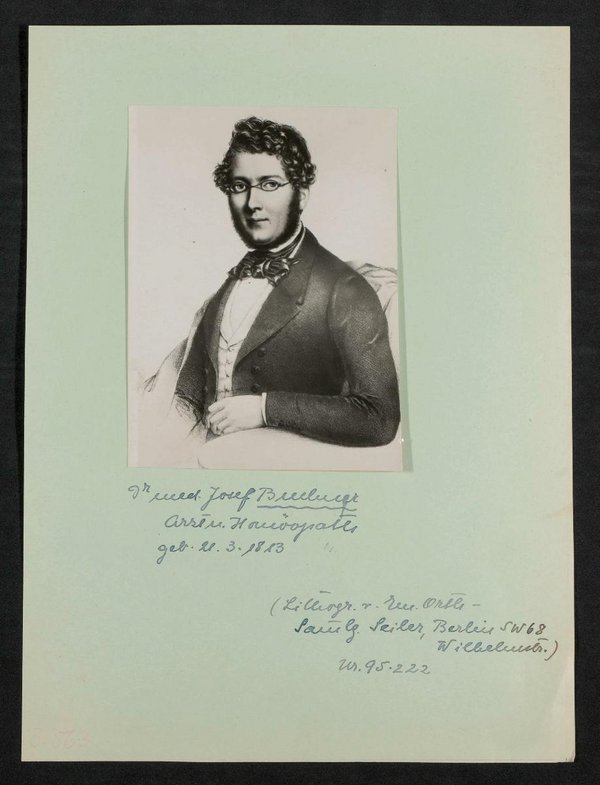 Dr med. Josef
Arzt u. Homöopath
geb. 21. 3. 1813
(Lithogr. v. Em.
Samlg. Seiler, Berlin SW 68
Wilhelmstr.)
Nr. 95.222